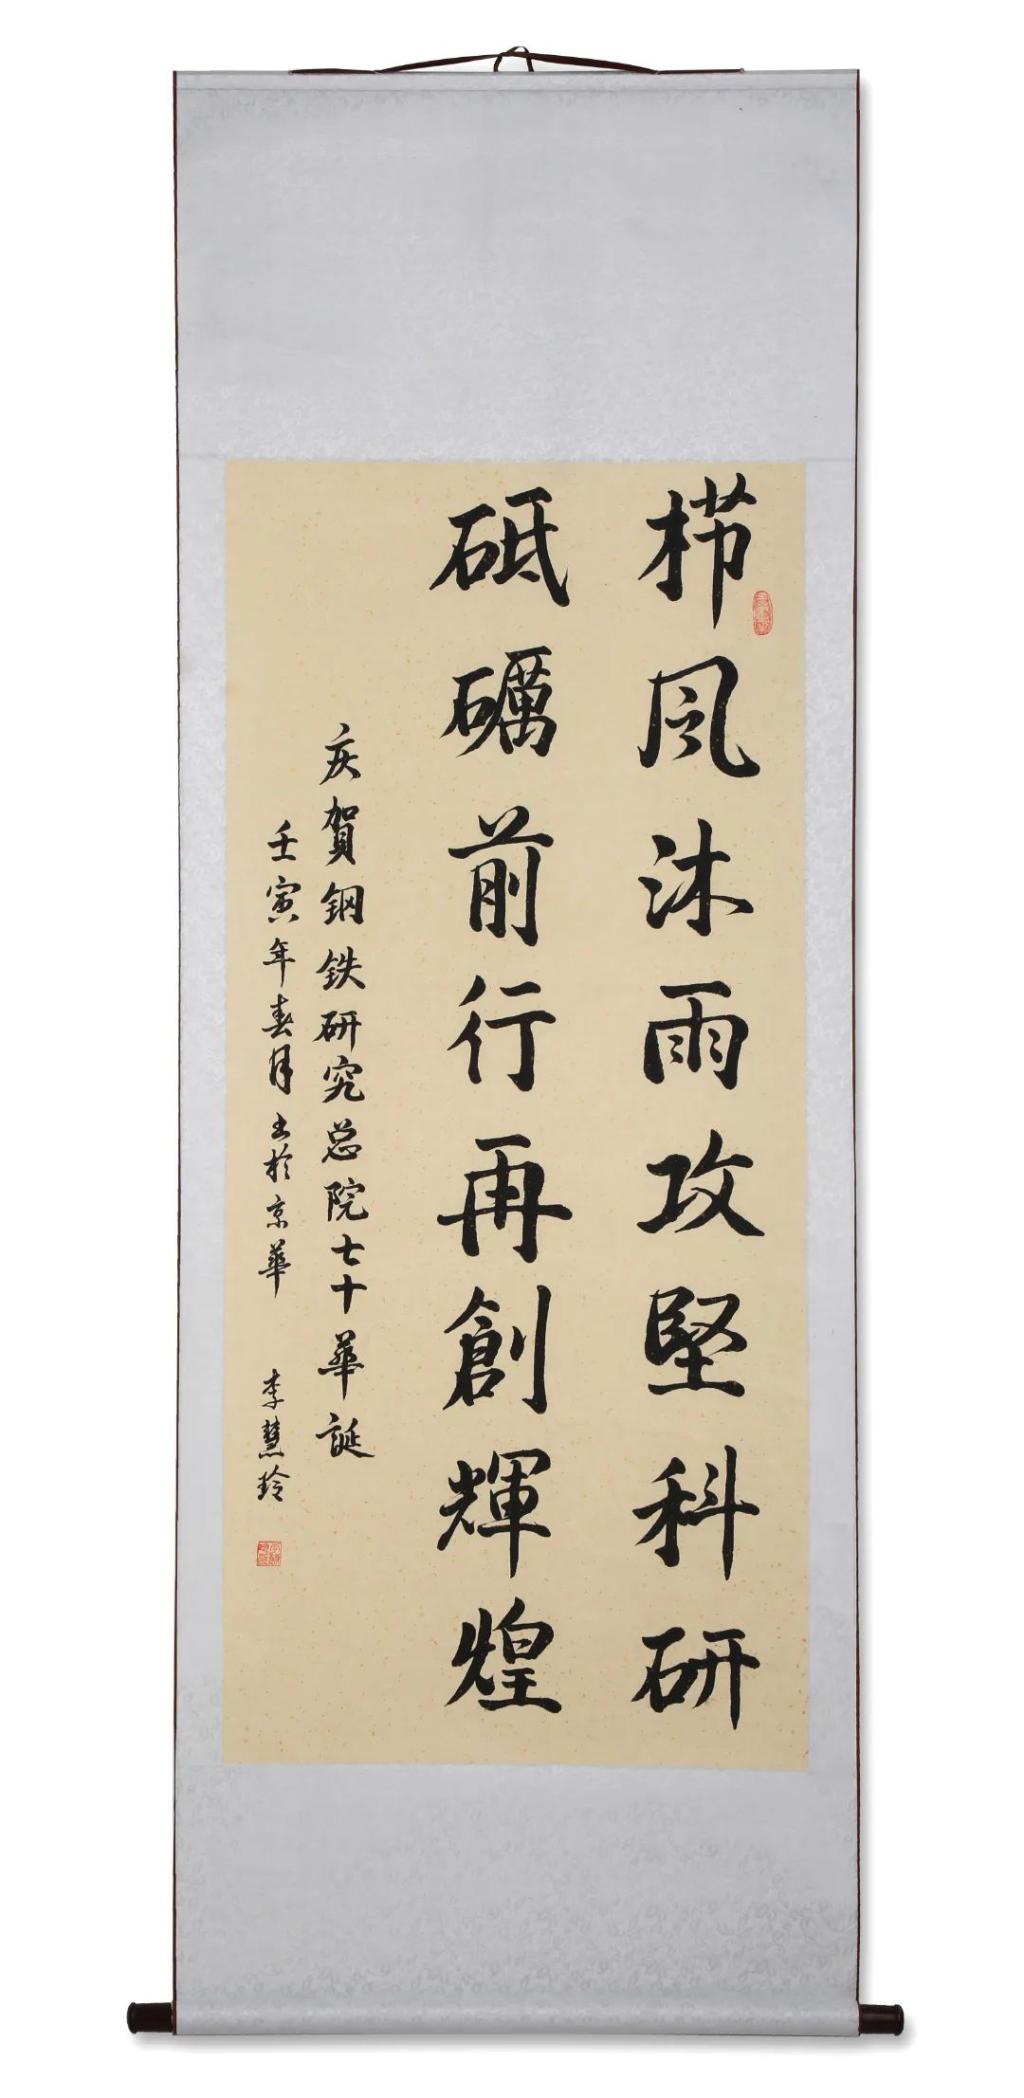 栉风沐雨攻堅科研
砥礪前行再創輝煌
庆賀钢铁研究总院七十華誕
壬寅年春月书於京華 李慧玲